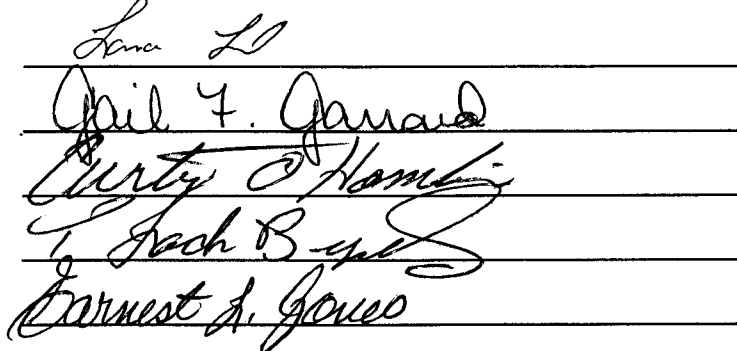 Lana
Gail F. Garrard
Curtis O Hamlin
T. Zach B
Earnest L. Jones